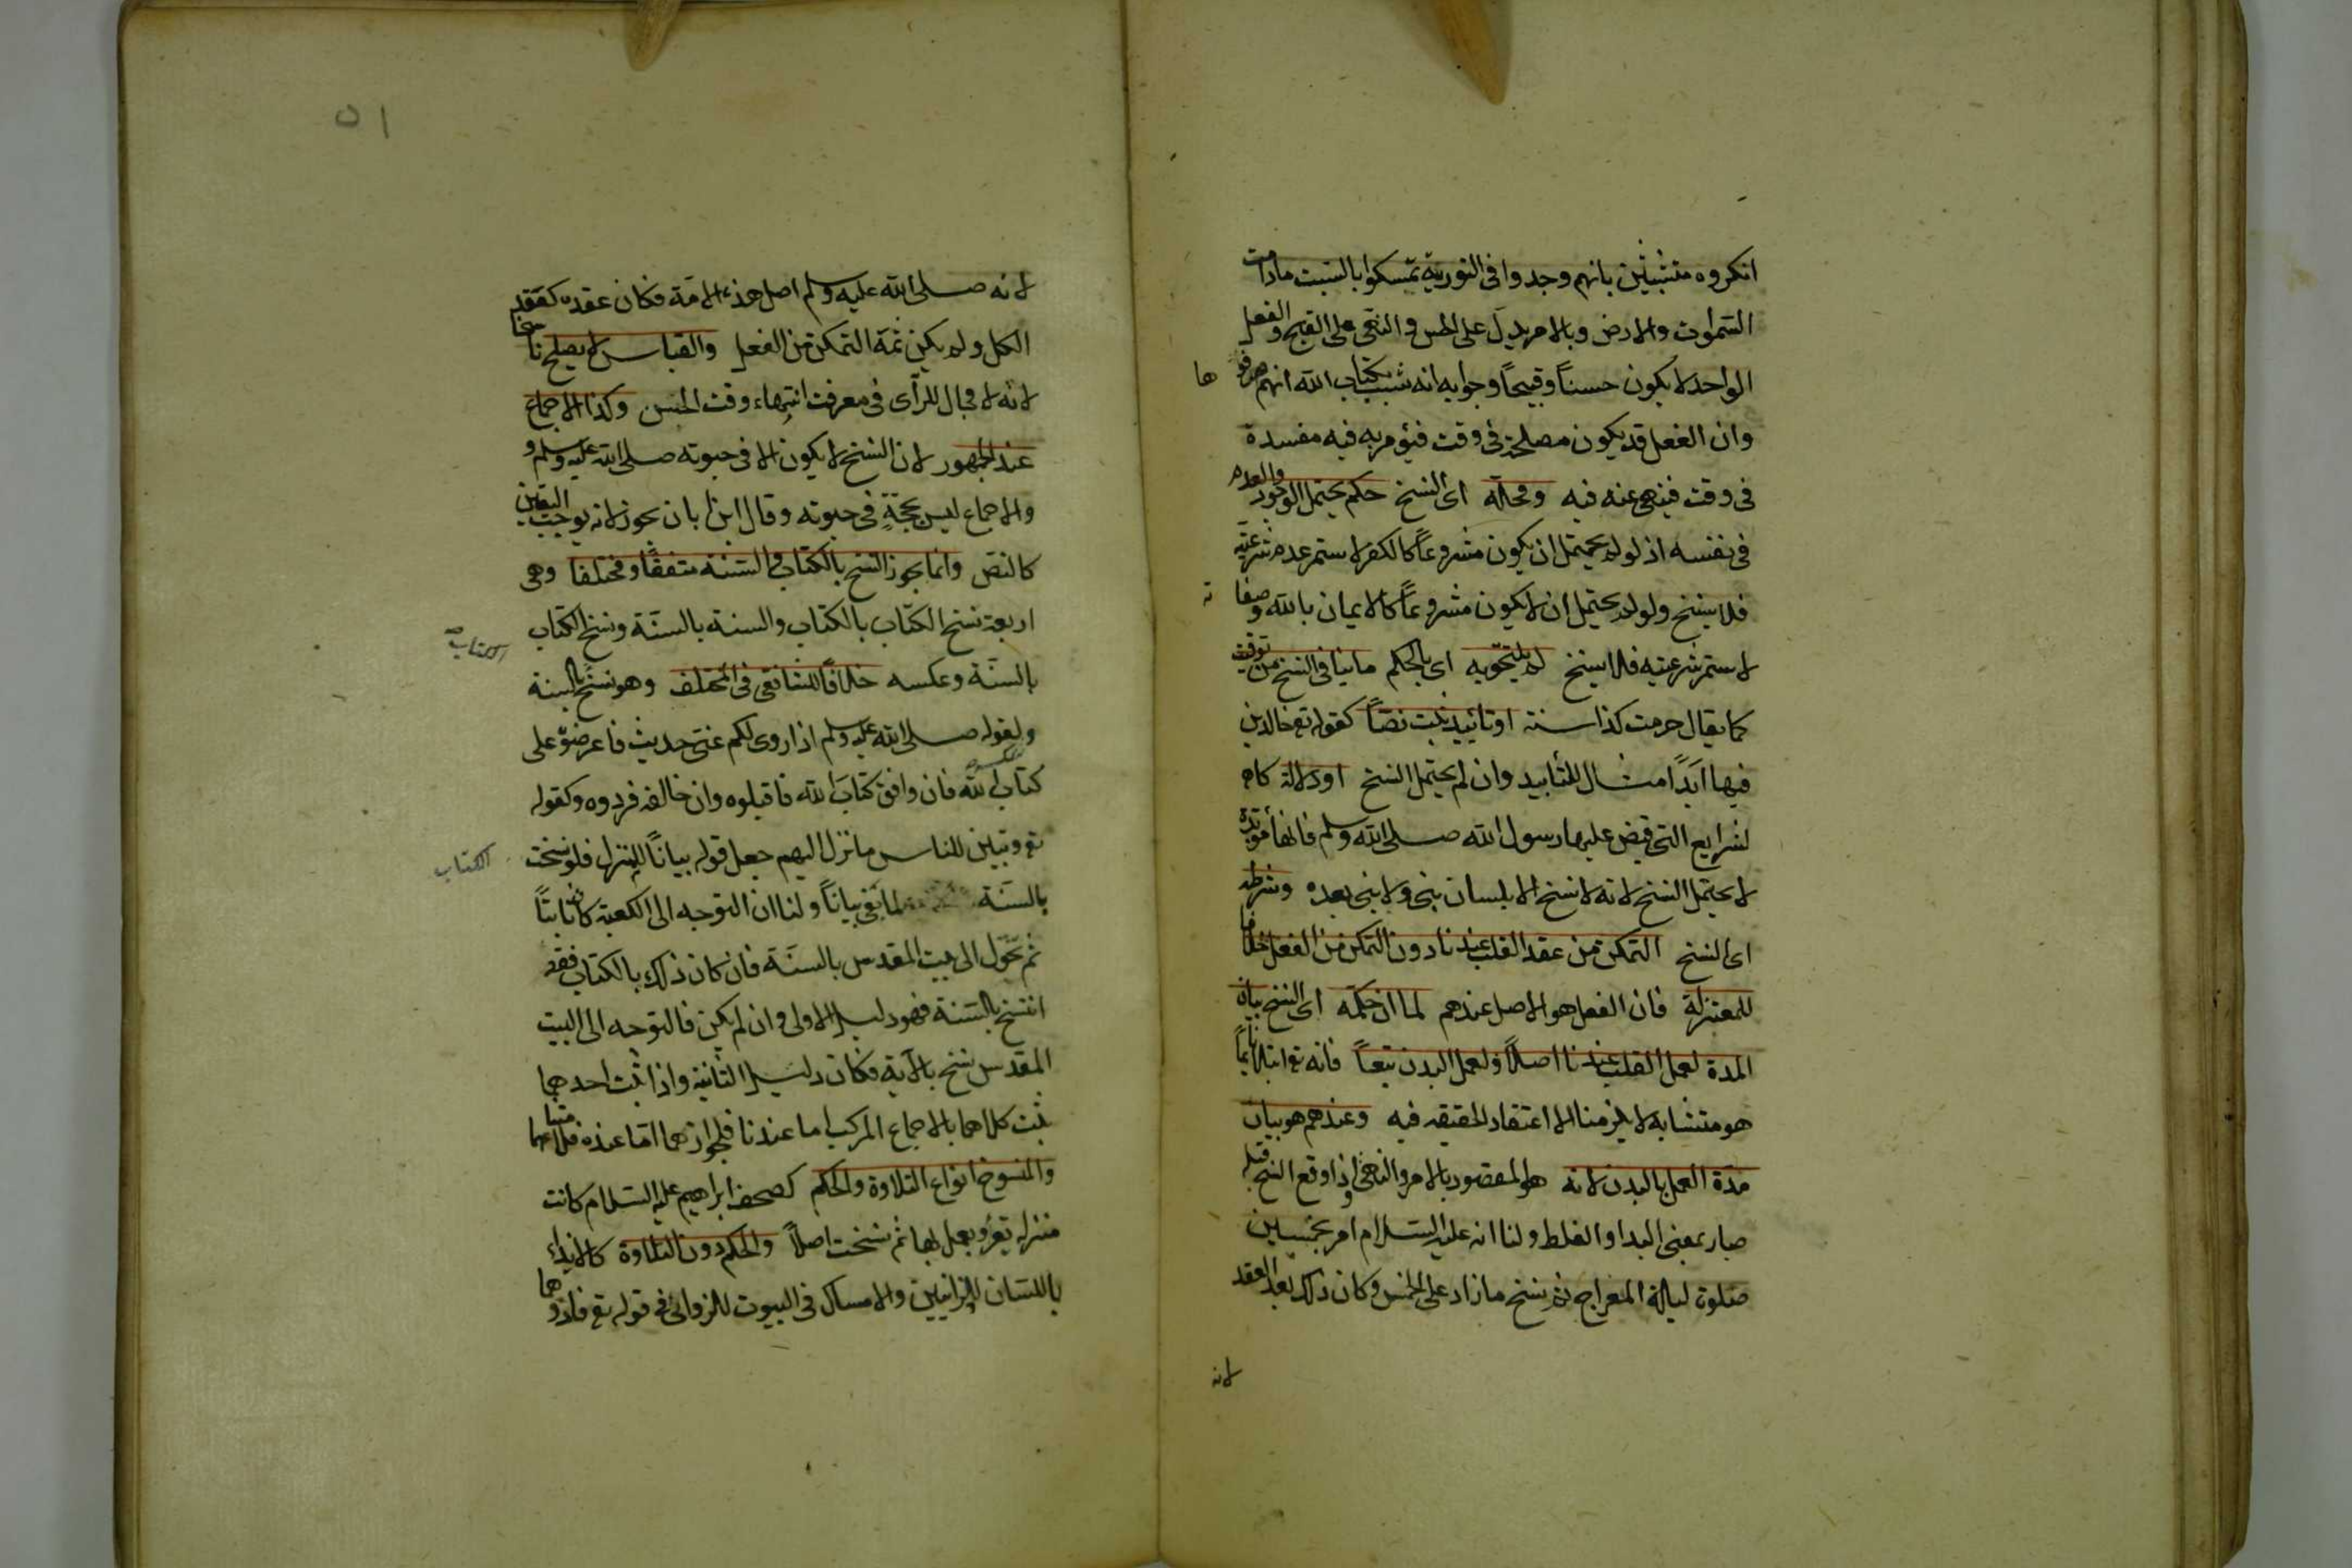 انكروه متشبثين بانهم وجدوا فى التورية تمسكوا بالسبت مادامت
السموات والارض وبالامر يدل على الحسن والنهى على القبح والفعل
الواحد لا يكون حسناً وقبيحاً وجوابه انه ثبت بكتاب الله انهم حرفو ها
وان الفعل قد يكون مصلحة فى وقت فيؤمر به فيه مفسدة
فى وقت فينهى عنه فيه ومحله اى النسخ حكم يحتمل الوجود والعدم
فى نفسه اذ لو لم يحتمل ان يكون مشروعاً كالكفر لاستمر عدم شرعيته
فلا ينسخ ولو لم يحتمل ان لا يكون مشروعاً كالايمان بالله وصفا ته
لاستمر شرعيته فلا ينسخ لم يلتحق به اى بالحكم ما ينافى النسخ من توقيت
كما يقال حرمت كذا سنة او تائيد ثبت نصاً كقوله تع خالدين
فيها ابداً مثال للتأبيد وان لم يحتمل النسخ او دلالة كا
لشرايع التى قبض عليها رسول الله صلى الله وسلم فانها مؤبدة
لا يحتمل النسخ لانه لا نسخ الا بلسان نبى ولا نبى بعده وشرطه
اى النسخ التمكن من عقد القلب عندنا دون التمكن من الفعل خلافا
للمعتزلة فان الفعل هو الاصل عندهم لما ان حكمه اى النسخ بيان
المدة لعمل القلب عندنا اصلاً ولعمل البدن تبعاً فانه تع ابتلانا بما
هو متشابه لا يلزمنا الا اعتقاد الحقيقه فيه وعندهم هو بيان
مدة العمل بالبدن لانه هو المقصود بالامر والنهى واذا وقع النسخ قبله
صار بمعنى البدا والغلط ولنا انه عليه السلام امر بخمسين
صلوة ليلة المعراج ثم نسخ ما زاد على الخمس وكان ذلك بعد العقد
لانه
٥١
لانه صلى الله عليه وسلم اصل هذه الامة فكان عقده كعقد
الكل ولم يكن ثمة التمكن من الفعل والقياس لا يصلح ناسخا
لانه لا مجال للرأى فى معرفت انتهاء وقت الحسن وكذا الاجماع
عند الجمهور لان النسخ لا يكون الا فى حيوته صلى الله عليه وسلم و
والاجماع ليس بحجة فى حيوته وقال ابن ابان يجوز لانه يوجب اليقين
كالنص وانما يجوز النسخ بالكتاب والسنة متفقا ومختلفا وهى
اربعة نسخ الكتاب بالكتاب والسنة بالسنة ونسخ الكتاب
بالسنة وعكسه خلافاً للشافعى فى المختلف وهو نسخ بالسنة الكتاب
ولقوله صلى الله عليه وسلم اذا روى لكم عنى حديث فاعرضوه على
كتاب الله فان وافق كتاب الله فاقبلوه وان خالفه فردوه وكقوله
تع وتبين للناس ما نزل اليهم جعل قوله بياناً للمنزل فلو نسخت الكتاب
بالسنة لما بقى بياناً ولنا ان التوجه الى الكعبة كان ثابتاً
ثم تحول الى بيت المقدس بالسنة فان كان ذلك بالكتاب فقد
انتسخ بالسنة فهو دليل الاولى وان لم يكن فالتوجه الى البيت
المقدس نسخ بالآية فكان دليل الثانية واذا ثبت احدهما
ثبت كلاهما بالاجماع المركب اما عندنا فلجوازهما اما عنده
والمنسوخ انواع التلاوة والحكم كصحف ابراهيم عليه السلام كانت
منزله تقرؤ ويعمل بها ثم نسخت اصلاً والحكم دون التلاوة كالايذاء
باللسان للزانيين والامساك فى البيوت للزوانى فى قوله تع فاذو هما